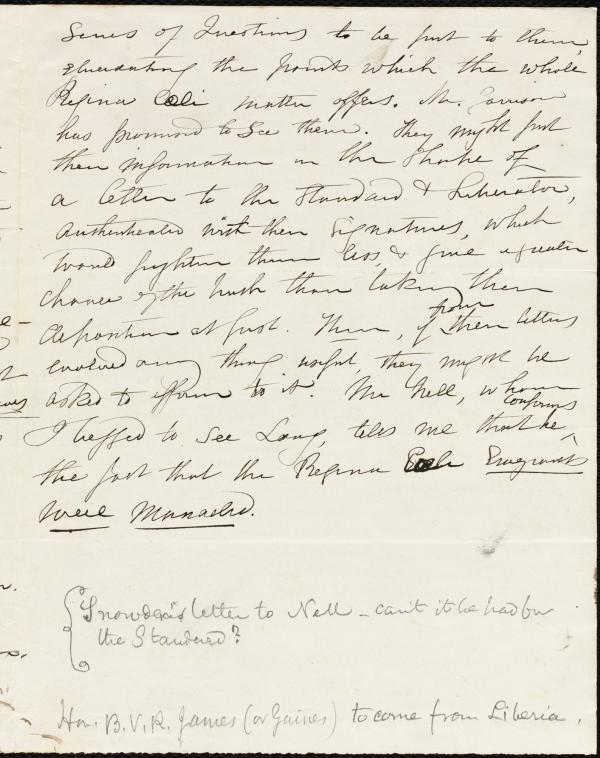 Series of Questions to be put to them,
elucidating the points which the whole
Regina Coeli matter offers. Mr. Garrison
has promised to see them. They might put
their information in the shape of
a letter to the Standard & Liberator,
authenticated with their signatures, which
would frighten them less, & give a greater
chance of the truth than taking their
deposition at first. Then, if from their letters
evolved any thing useful, they might be
asked to affirm to it. Mr Nell, whom
I begged to see Lang, tells me that he confirms
the fact that the Regina Coeli Emigrants
were Manacled.
Snowden's letter to Nell - can't it be had for
the Standard?
Hon. B. V. R. James (or Gaines) to come from Liberia.